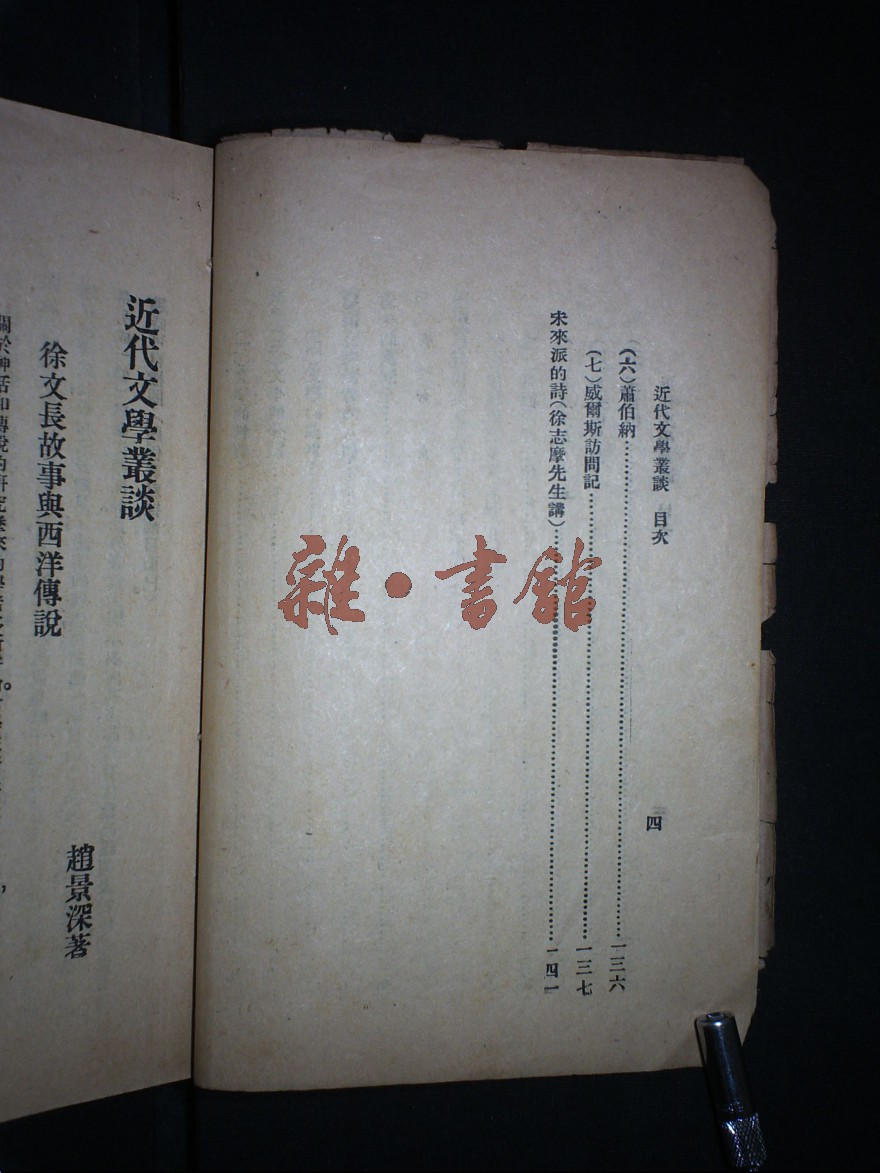 近代文學叢談　目次
四
(六)蕭伯納……一三六
(七)威爾斯訪問記……一三七
未來派的詩(徐志摩先生講)……一四一
雜·書館
近代文學叢談
趙景深著
徐文長故事與西洋傳說